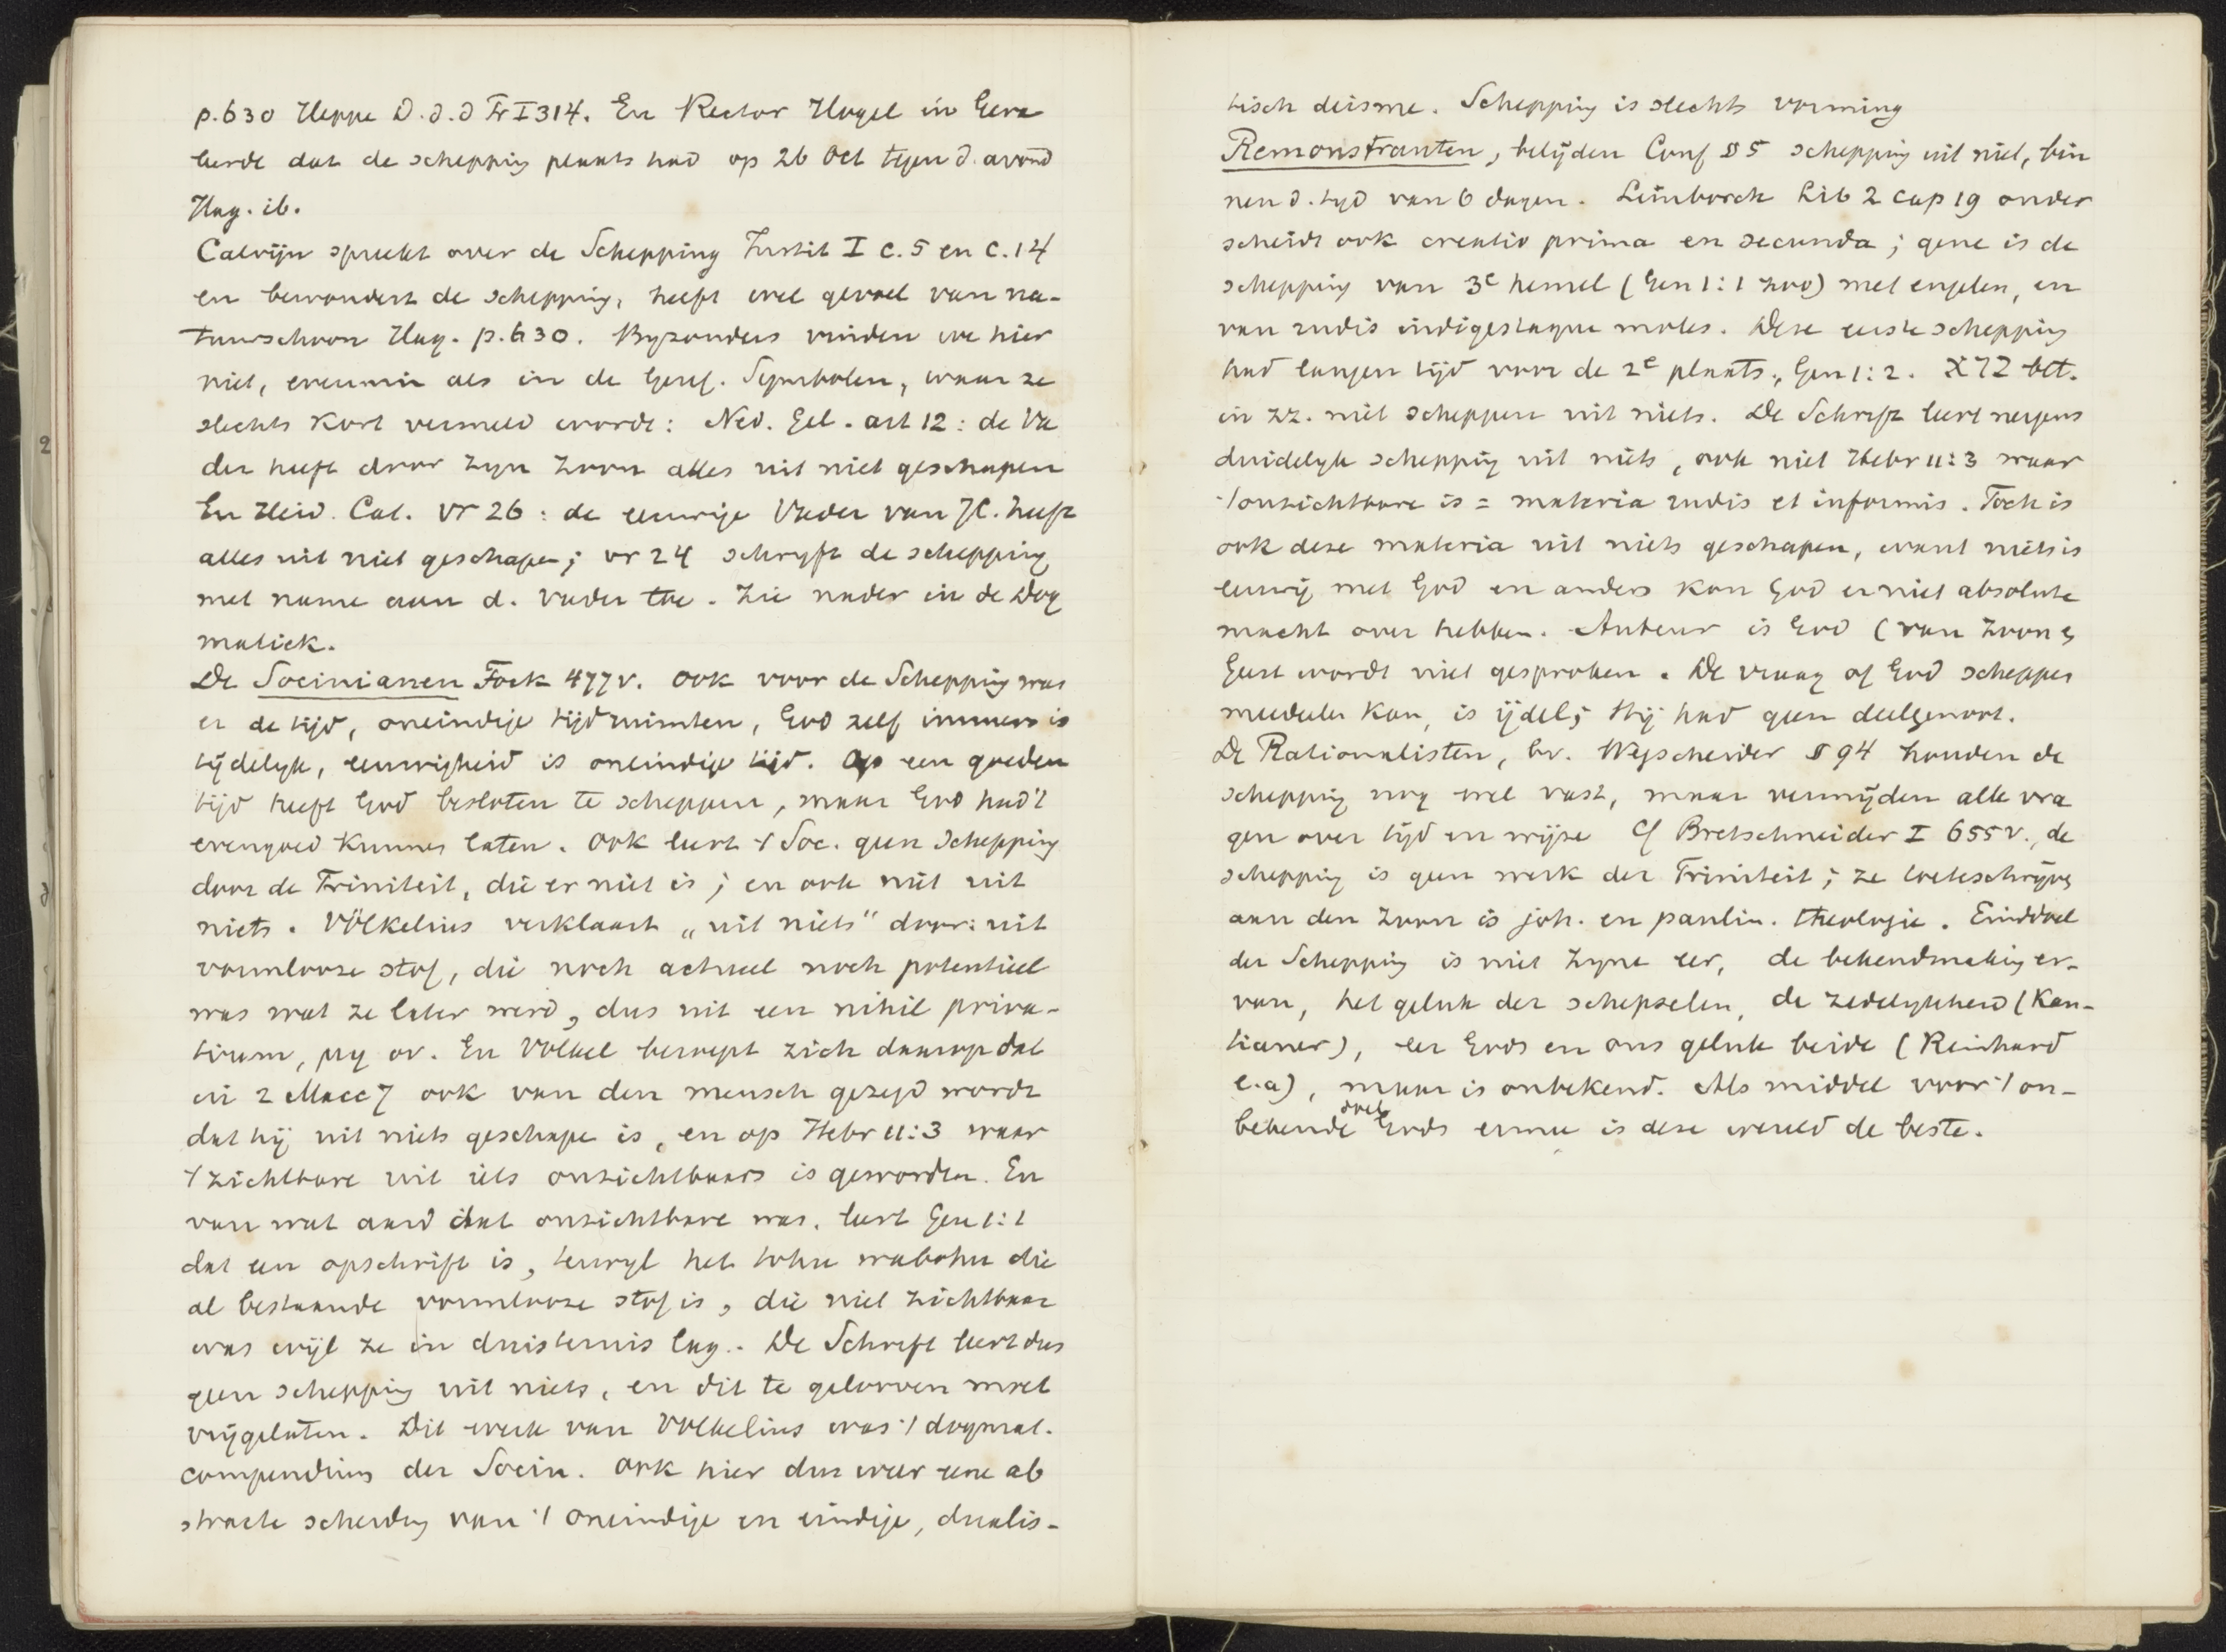 p. 630 Heppe D. d. d Pr I 314. En Rector Hogel in Gera
leerde dat de schepping plaats had op 26 Oct tegen d. avond
Hag. ib.
Calvijn spreekt over de Schepping Instit I c. 5 en c. 14
en bewondert de schepping, heeft wel gevoel van na-
tuurschoon Hag. p. 630. Byzonders vinden we hier
niet, evenmin als in de Geref. Symbolen, waar ze
slechts kort vermeld wordt: Ned. Gel. art 12: de Va
der heeft door zyn Zoon alles uit niet geschapen
En Heid. Cat. vr 26: de eeuwige Vader van JC. heeft
alles uit niet geschapen; vr 24 schryft de schepping
met name aan d. Vader toe. Zie nader in de Dog
matiek.
De Socinianen Fock 477 v. Ook voor de Schepping was
er de tijd, oneindige tijdruimten, God zelf immers is
tijdelyk, eeuwigheid is oneindige tijd. Op een goeden
tijd heeft God besloten te scheppen, maar God had 't
evengoed kunnen laten. Ook leert 't Soc. geen Schepping
door de Triniteit, die er niet is; en ook niet uit
niets. Völkelius verklaart „uit niets" door: uit
vormlooze stof, die noch actueel noch potentieel
was wat ze later werd, dus uit een nihil priva-
tivum, μη ον. En Völkel beroept zich daarop dat
in 2 Macc 7 ook van den mensch gezegd wordt
dat hij uit niets geschape is, en op Hebr 11:3 waar
't zichtbare uit iets onzichtbaars is geworden. En
van wat aard dat onzichtbare was, leert Gen 1:1
dat een opschrift is, terwyl het tohu wabohu die
al bestaande vormlooze stof is, die niet zichtbaar
was wijl ze in duisternis lag. De Schrift leert dus
geen schepping uit niets, en dit te gelooven moet
vrijgelaten. Dit werk van Volkelius was 't dogmat.
compendium der Socin. Ook hier dus weer eene ab
stracte scheiding van 't oneindige en eindige, dualis-
tisch deisme. Schepping is slechts vorming
Remonstranten, belijden Conf § 5 schepping uit niet, bin
nen d. tyd van 6 dagen. Limborch Lib 2 cap 19 onder
scheidt ook creatio prima en secunda; gene is de
schepping van 3e hemel (Gen 1:1 zoo) met engelen, en
van rudis indigestaque moles. Deze eerste schepping
had langen tijd voor de 2e plaats, Gen 1:2. ברא bet.
in zz. niet scheppen uit niets. De Schrift leert nergens
duidelyk schepping uit niets, ook niet Hebr 11:3 waar
't onzichtbare is = materia rudis et informis. Toch is
ook deze materia uit niets geschapen, want niets is
eeuwig met God en anders kon God er niet absolute
macht over hebben. Auteur is God (van Zoon en
Geest wordt niet gesproken. De vraag of God scheppen
meedeelen kan, is ijdel; Hij had geen deelgenoot.
De Rationalisten, bv. Wegscheider § 94 houden de
schepping nog wel vast, maar vermijden alle vra
gen over tijd en wijze Cf Bretschneider I 655 v., de
schepping is geen werk der Triniteit; ze toeteschrijven
aan den Zoon is joh. en paulin. theologie. Einddoel
der Schepping is niet Zyne eer, de bekendmaking er-
van, het geluk der schepselen, de zedelykheid (Kan-
tianer), eer Gods en ons geluk beide (Reinhard
e.a), maar is onbekend. Als middel voor 't on-
bekende doel Gods ermee is deze wereld de beste.